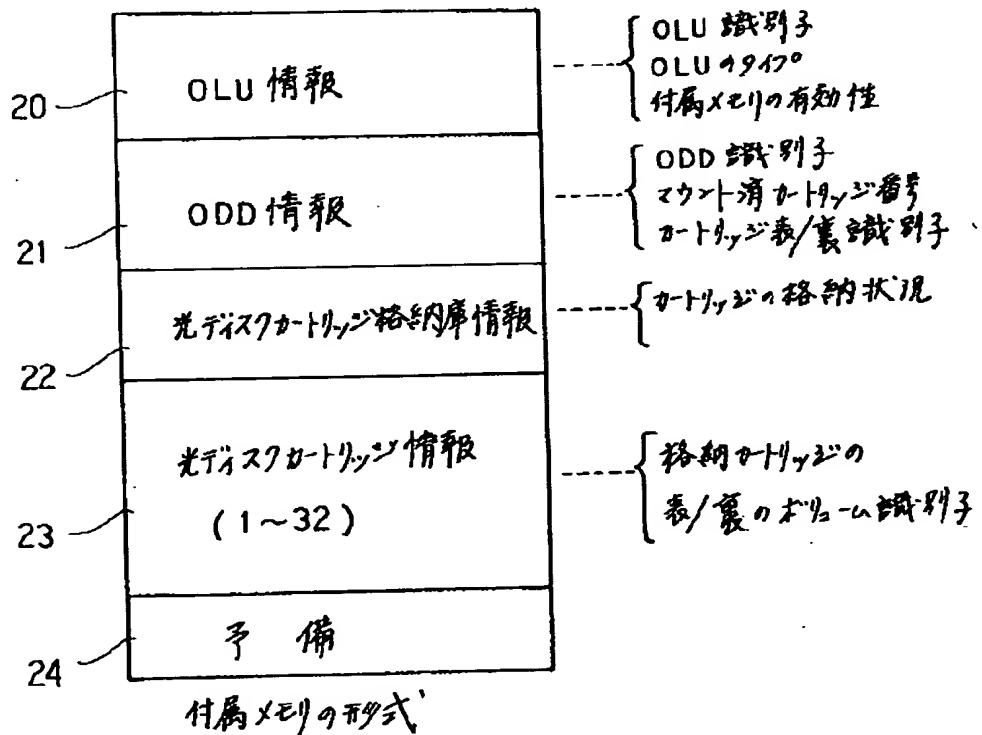 20
OLU 情報
OLU 識別子
OLU のタイプ
付属メモリの有効性
21
ODD 情報
ODD 識別子
マウント済カートリッジ番号
カートリッジ表/裏識別子
22
光ディスクカートリッジ格納庫情報
カートリッジの格納状況
23
光ディスクカートリッジ情報
(1~32)
格納カートリッジの
表/裏のボリューム識別子
24
予 備
付属メモリの形式